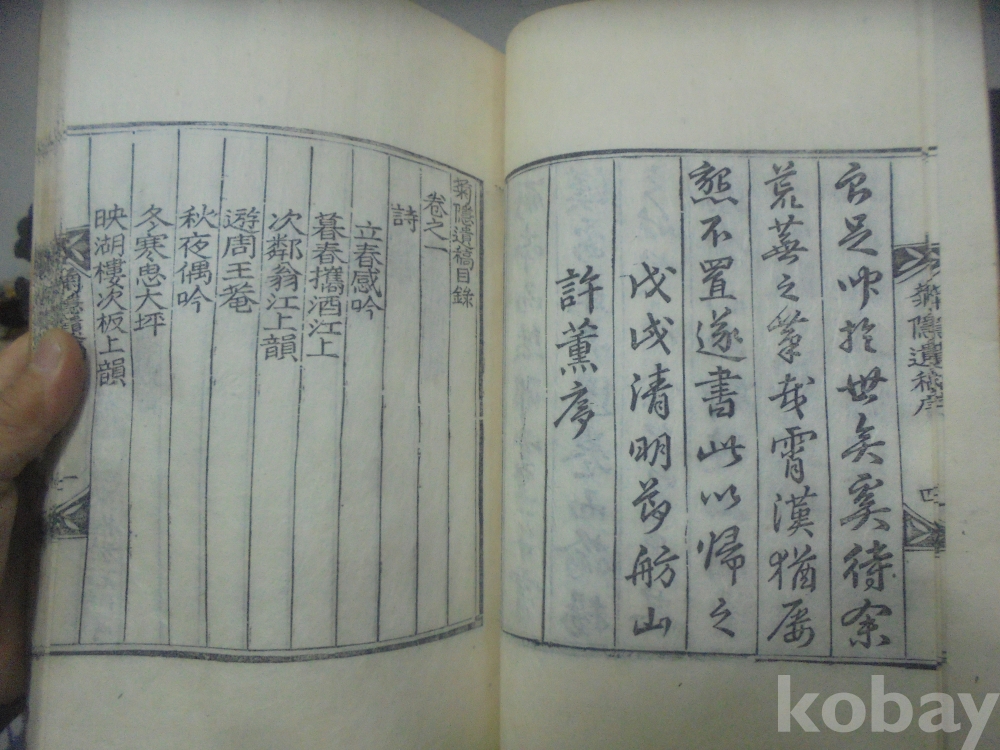 菊隱遺稿序
四
良足於世矣奚待余
荒蕪之筆哉霄漢猶屢
懇不置遂書此以歸之
戊戌清明節舫山
許薰序
菊隱遺稿目錄
卷之一
詩
立春感吟
暮春攜酒江上
次鄰翁江上韻
遊周王菴
秋夜偶吟
冬寒思大坪
映湖樓次板上韻
菊隱遺
一
kobay